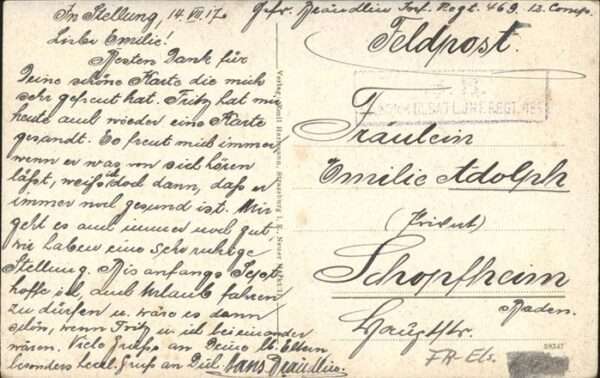 In Stellung, 14. VII. 17.
Liebe Emilie!
Besten Dank für
Deine schöne Karte die mich
sehr gefreut hat. Fritz hat mir
heute auch wieder eine Karte
gesandt. Es freut mich immer
wenn er was von sich hören
läßt, weiß ich doch dann, daß er
immer noch gesund ist. Mir
geht es auch immer noch gut,
wir haben eine sehr ruhige
Stellung. Bis anfangs Sept.
hoffe ich, auch Urlaub fahren
zu dürfen u. wäre es dann
schön, wenn Fritz u. ich beieinander
wären. Viele Grüße an Deine lb. Eltern
besonders herzl. Gruß an Dich Hans Bräudlin.
Gefr. Bräudlin Inf. Regt. 469. 12. Comp.
Feldpost.
Fräulein
Emilie Adolph
(Privat)
Schopfheim
Baden.
Hauptstr.
FR-Els.